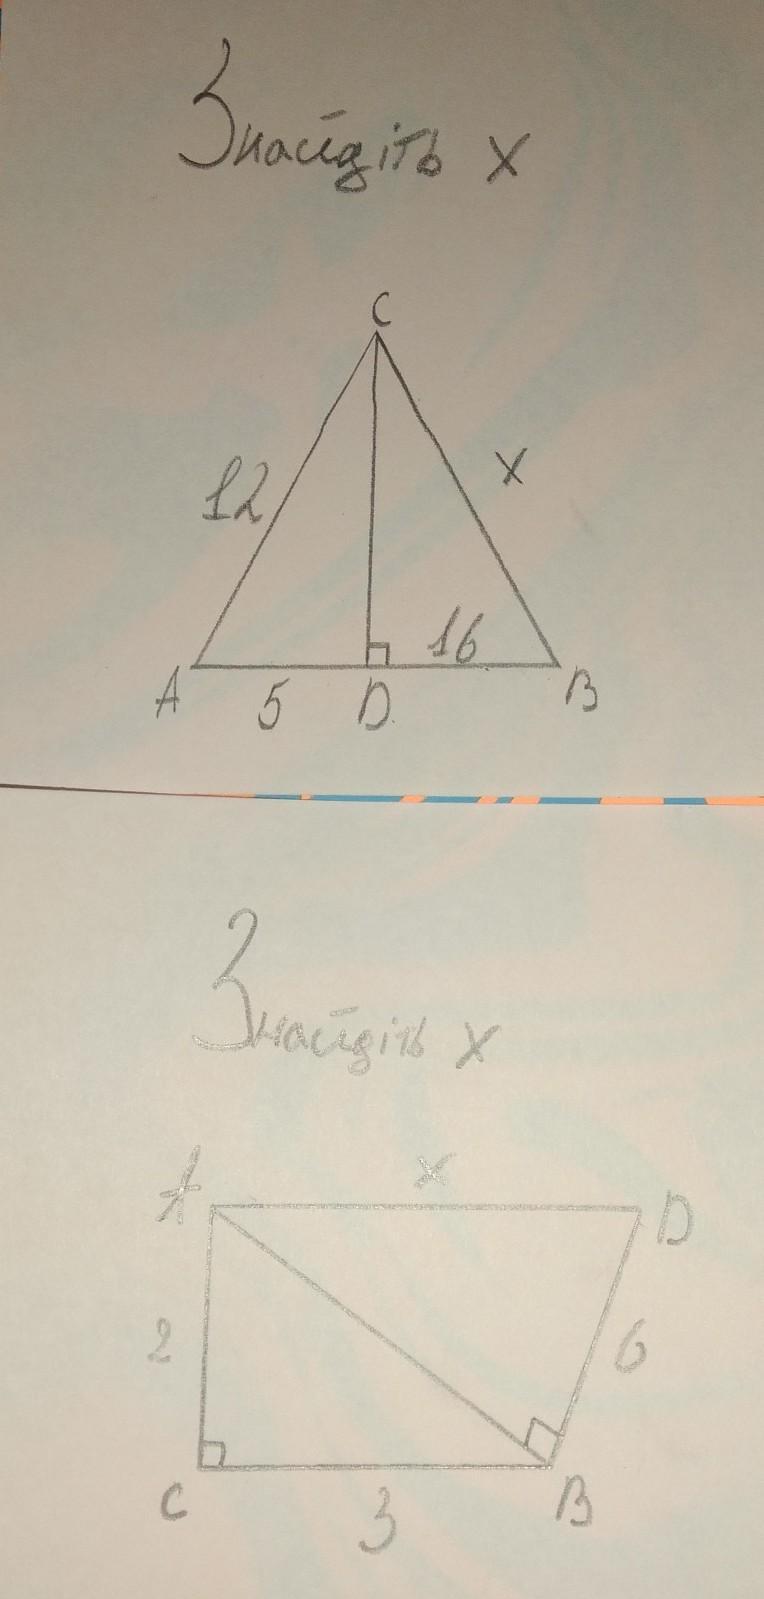 Знайдіть x
C
12
x
16
A
5
D
B
Знайдіть x
A
x
D
2
6
C
3
B